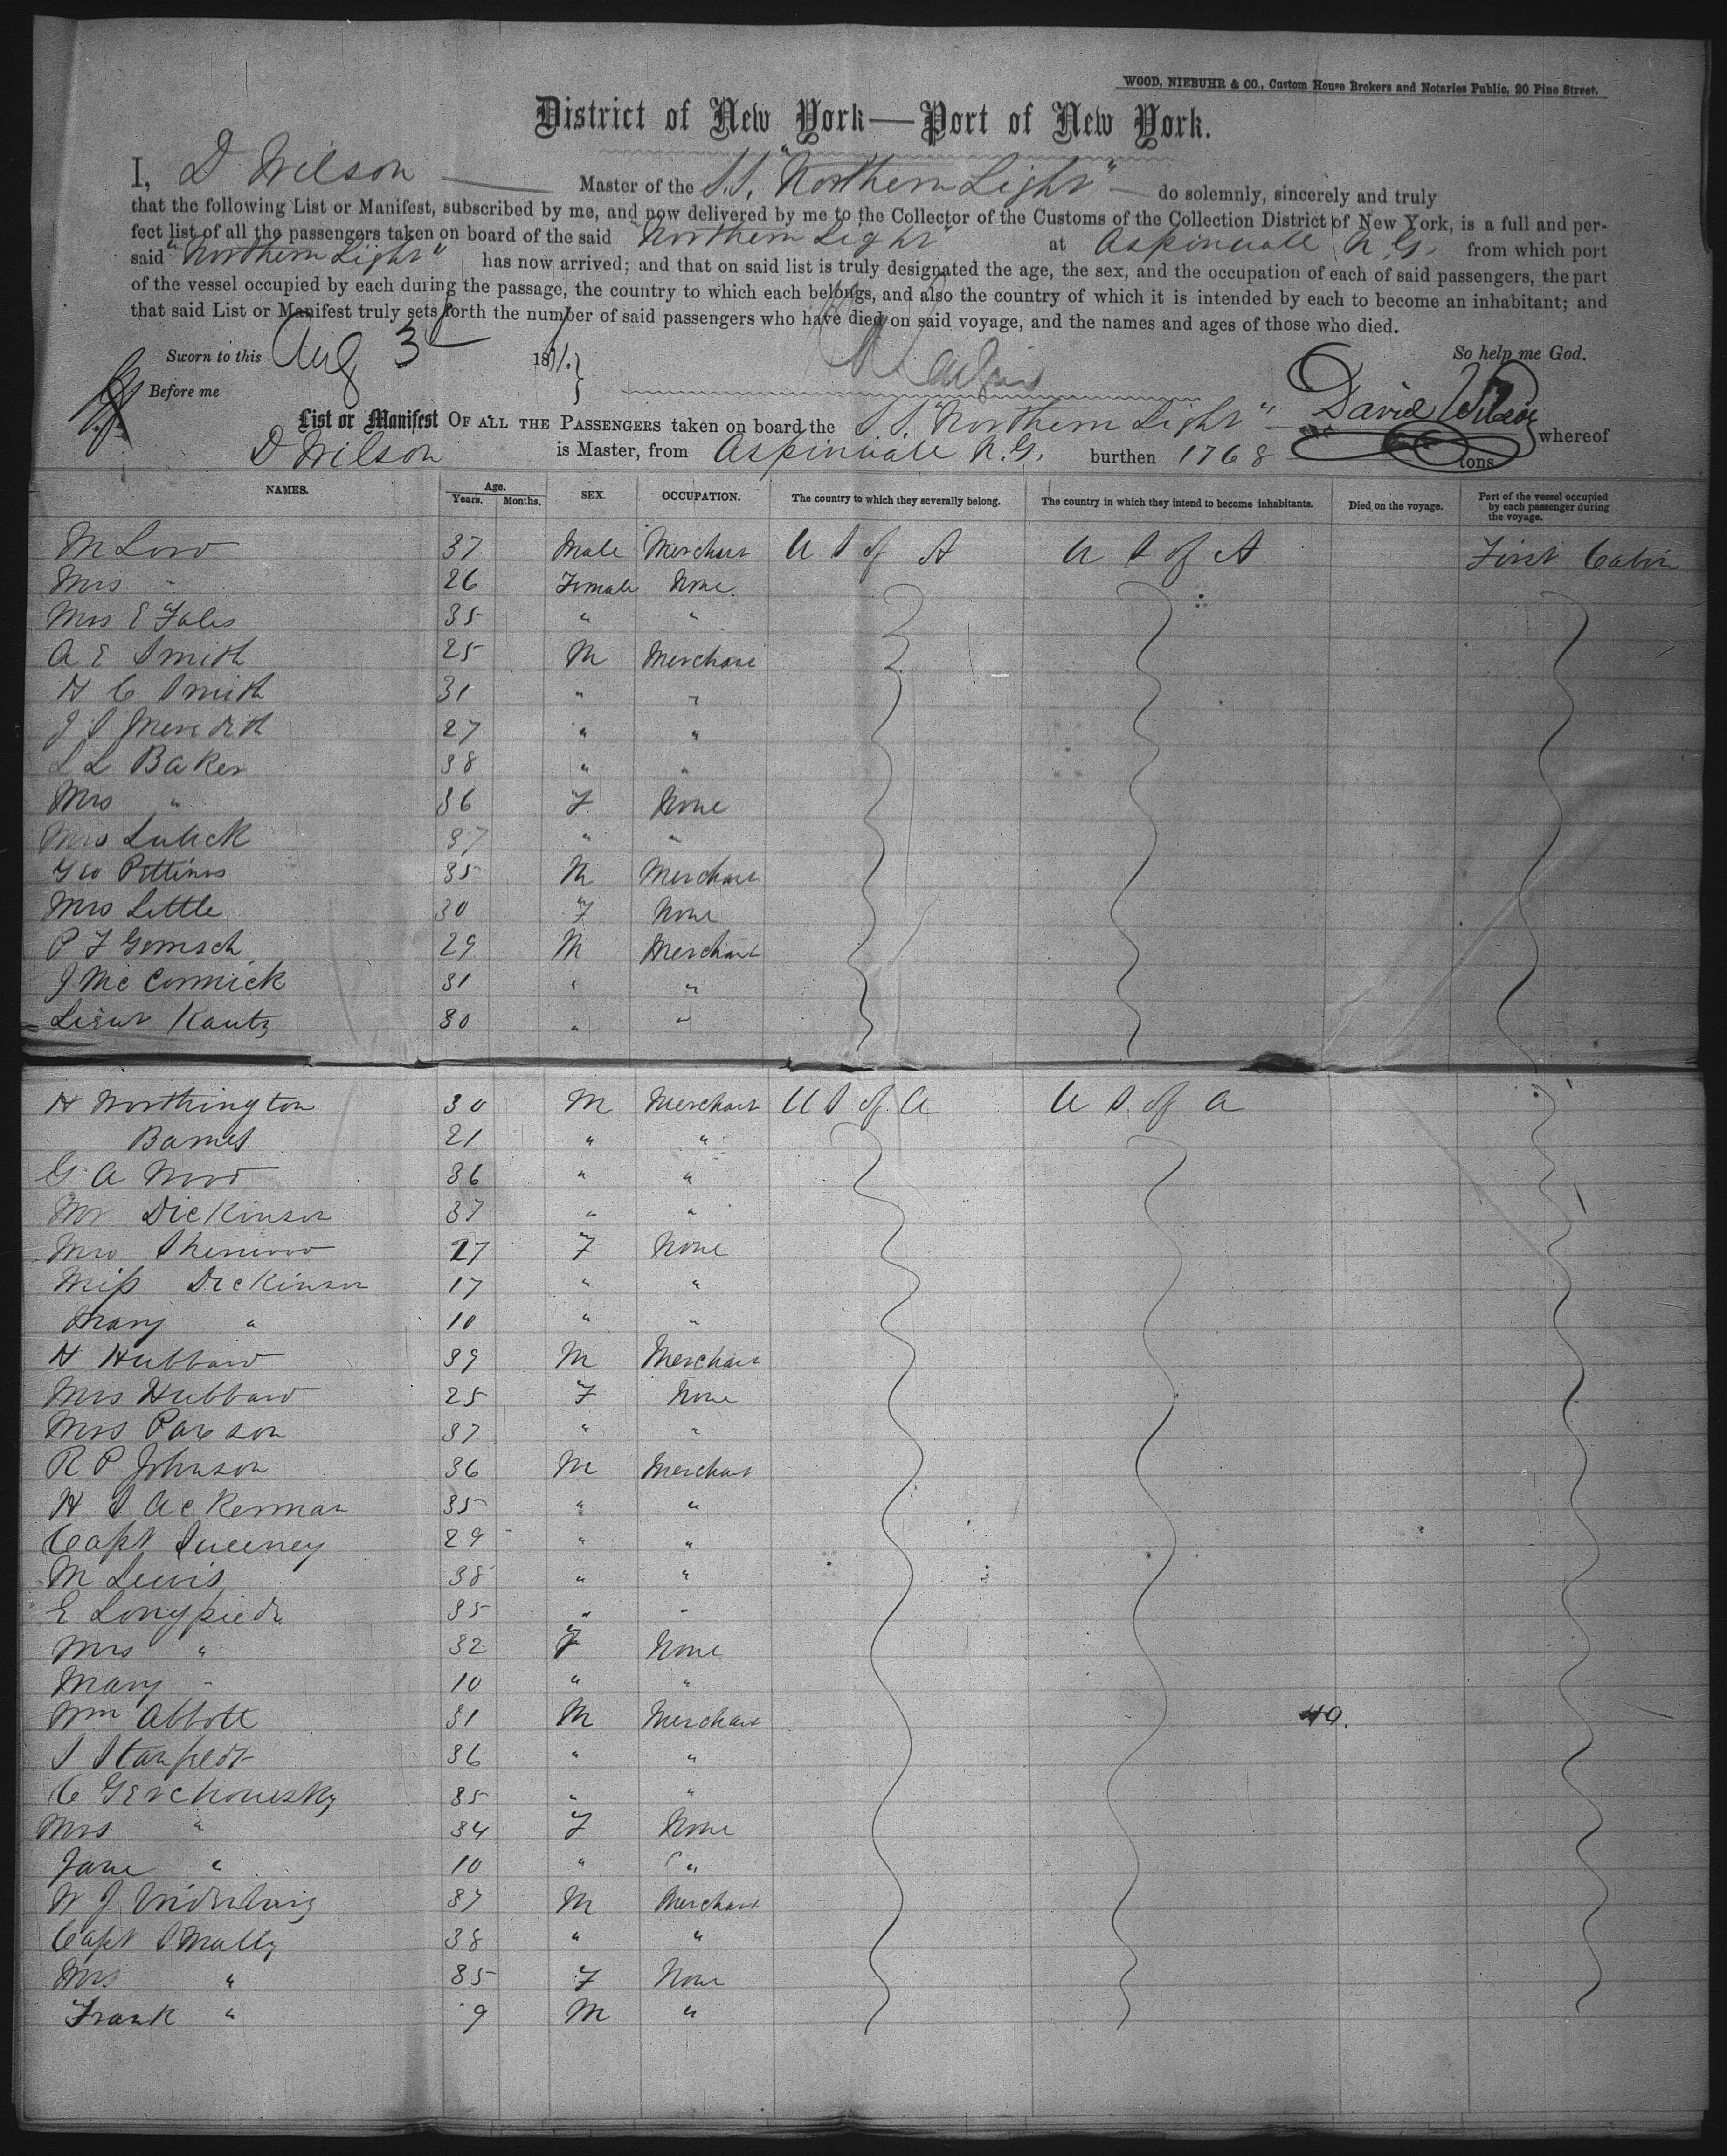 WOOD, NIEBUHR & CO., Custom House Brokers and Notaries Public, 20 Pine Street.
District of New York—Port of New York.
I, D Wilson Master of the S.S. "Northern Light" do solemnly, sincerely and truly
that the following List or Manifest, subscribed by me, and now delivered by me to the Collector of the Customs of the Collection District of New York, is a full and per-
fect list of all the passengers taken on board of the said "Northern Light" at Aspinwall N.G. from which port
said "Northern Light" has now arrived; and that on said list is truly designated the age, the sex, and the occupation of each of said passengers, the part
of the vessel occupied by each during the passage, the country to which each belongs, and also the country of which it is intended by each to become an inhabitant; and
that said List or Manifest truly sets forth the number of said passengers who have died on said voyage, and the names and ages of those who died.
Sworn to this Aug 3 18 So help me God.
Before me David Wilson
List or Manifest OF ALL THE PASSENGERS taken on board the S.S. "Northern Light" whereof
D Wilson is Master, from Aspinwall N.G. burthen 1768 tons
NAMES. Age. Years. Months. SEX. OCCUPATION. The country to which they severally belong. The country in which they intend to become inhabitants. Died on the voyage. Part of the vessel occupied by each passenger during the voyage.
M Lord 37 Male Merchant U S of A U S of A First Cabin
Mrs " 26 Female None
Mrs E Fales 35 " "
A E Smith 25 M Merchant
H C Smith 31 " "
J S Meredith 27 " "
L L Baker 38 " "
Mrs " 36 F None
Mrs Lubeck 37 " "
Geo Pettinos 35 M Merchant
Mrs Little 30 F None
P F Gemsch 29 M Merchant
J McCormick 31 " "
Lieut Kautz 30 " "
H Worthington 30 M Merchant U S of A U S of A
Barnes 21 " "
G A Wood 36 " "
Mr Dickinson 37 " "
Mrs Sherwood 27 F None
Miss Dickinson 17 " "
Mary " 10 " "
H Hubbard 39 M Merchant
Mrs Hubbard 25 F None
Mrs 37 " "
R P Johnson 36 M Merchant
H S Ackerman 35 " "
Capt Sweeney 29 " "
M Lewis 38 " "
E 35 " "
Mrs " 32 F None
Mary " 10 " "
Wm Abbott 31 M Merchant 40.
S 36 " "
C 35 " "
Mrs " 34 F None
Jane " 10 " "
W J 37 M Merchant
Capt Smally 38 " "
Mrs " 35 F None
Frank " 9 M "